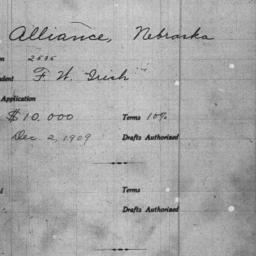 Alliance, Nebraska
2535
F. W. Irish
Application
$10,000 Terms 10%
Dec 2, 1909 Drafts Authorized
Terms
Drafts Authorized